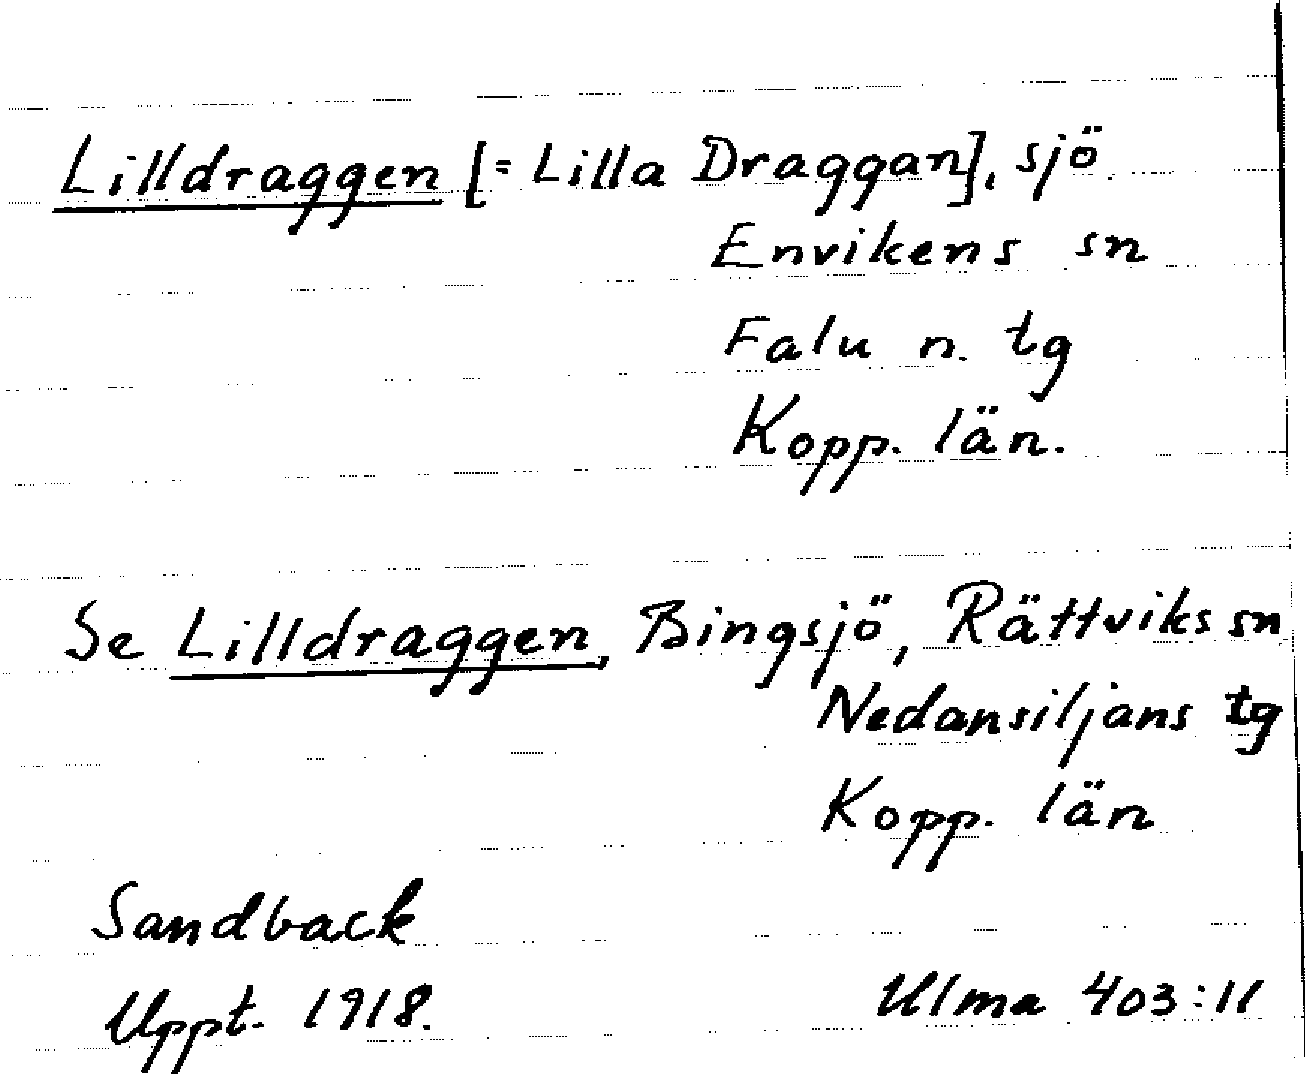 Lilldraggen [= Lilla Draggan], sjö
Envikens sn
Falu n. tg
Kopp. län.
Se Lilldraggen, Bingsjö, Rättviks sn
Nedansiljans tg
Kopp. län
Sandback
Uppt. 1918.
Ulma 403:11